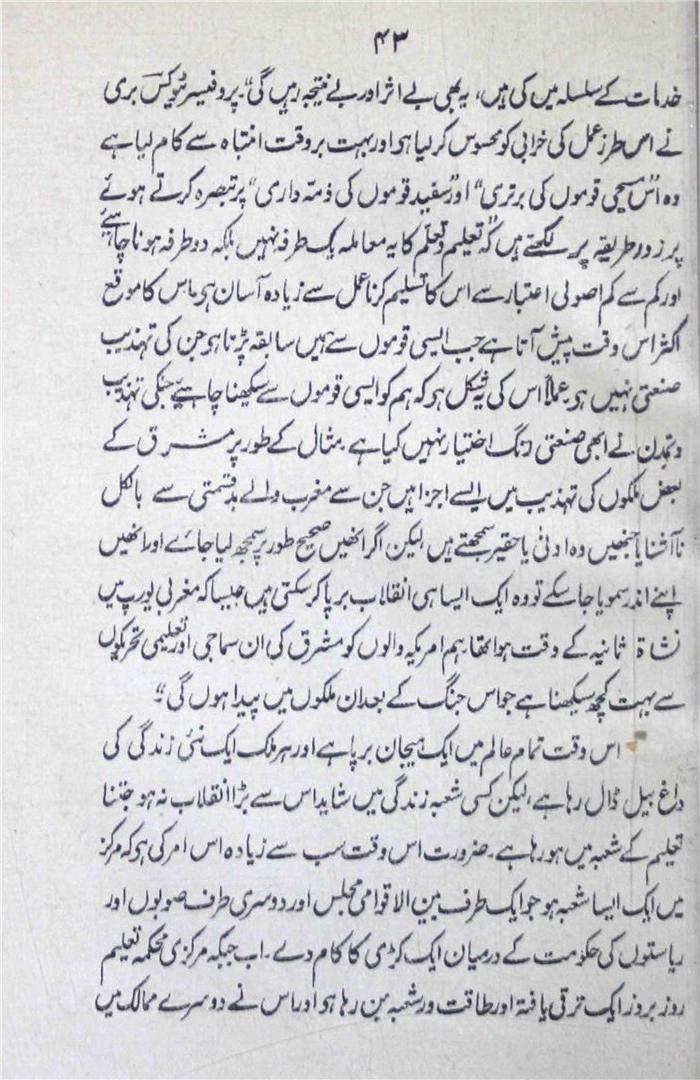 ۴۳
خدمات کے سلسلہ میں کی ہیں، یہ بھی بے اثر اور بے نتیجہ رہیں گی"۔ پروفیسر ٹویکس بری
نے اس طرز عمل کی خرابی کو محسوس کر لیا ہو اور بہت بر وقت انتباہ سے کام لیا ہے
وہ اس "مسیحی قوموں کی برتری" اور "سفید قوموں کی ذمہ داری" پر تبصرہ کرتے ہوئے
پر زور طریقہ پر لکھتے ہیں کہ "تعلیم و تعلّم کا یہ معاملہ یک طرفہ نہیں بلکہ دو طرفہ ہونا چاہیئے
اور کم سے کم اصولی اعتبار سے اس کا تسلیم کرنا عمل سے زیادہ آسان ہو۔ اس کا موقع
اکثر اس وقت پیش آتا ہے جب ایسی قوموں سے ہمیں سابقہ پڑتا ہو جن کی تہذیب
صنعتی نہیں ہو۔ عملاً اس کی یہ شکل ہو کہ ہم کو ایسی قوموں سے سیکھنا چاہیے جنکی تہذیب
و تمدن نے ابھی صنعتی رنگ اختیار نہیں کیا ہے۔ مثال کے طور پر مشرق کے
بعض ملکوں کی تہذیب میں ایسے اجزا ہیں جن سے مغرب والے بدقسمتی سے بالکل
نا آشنا یا جنھیں وہ ادنیٰ یا حقیر سمجھتے ہیں لیکن اگر انھیں صحیح طور پر سمجھ لیا جائے اور انھیں
اپنے اندر سمویا جا سکے تو وہ ایک ایسا ہی انقلاب برپا کر سکتی ہیں جیسا کہ مغربی یورپ میں
نشاۃ ثانیہ کے وقت ہوا تھا۔ ہم امریکہ والوں کو مشرق کی ان سماجی اور تعلیمی تحریکوں
سے بہت کچھ سیکھنا ہے جو اس جنگ کے بعد ان ملکوں میں پیدا ہوں گی"۔
اس وقت تمام عالم میں ایک ہیجان برپا ہے اور ہر ملک ایک نئی زندگی کی
داغ بیل ڈال رہا ہے، لیکن کسی شعبہ زندگی میں شاید اس سے بڑا انقلاب نہ ہو جتنا
تعلیم کے شعبہ میں ہو رہا ہے۔ ضرورت اس وقت سب سے زیادہ اس امر کی ہو کہ مرکز
میں ایک ایسا شعبہ ہو جو ایک طرف بین الاقوامی مجلس اور دوسری طرف صوبوں اور
ریاستوں کی حکومت کے درمیان ایک کڑی کا کام دے۔ اب جبکہ مرکزی محکمہ تعلیم
روز بروز ایک ترقی یافتہ اور طاقت ور شعبہ بن رہا ہو اور اس نے دوسرے ممالک میں